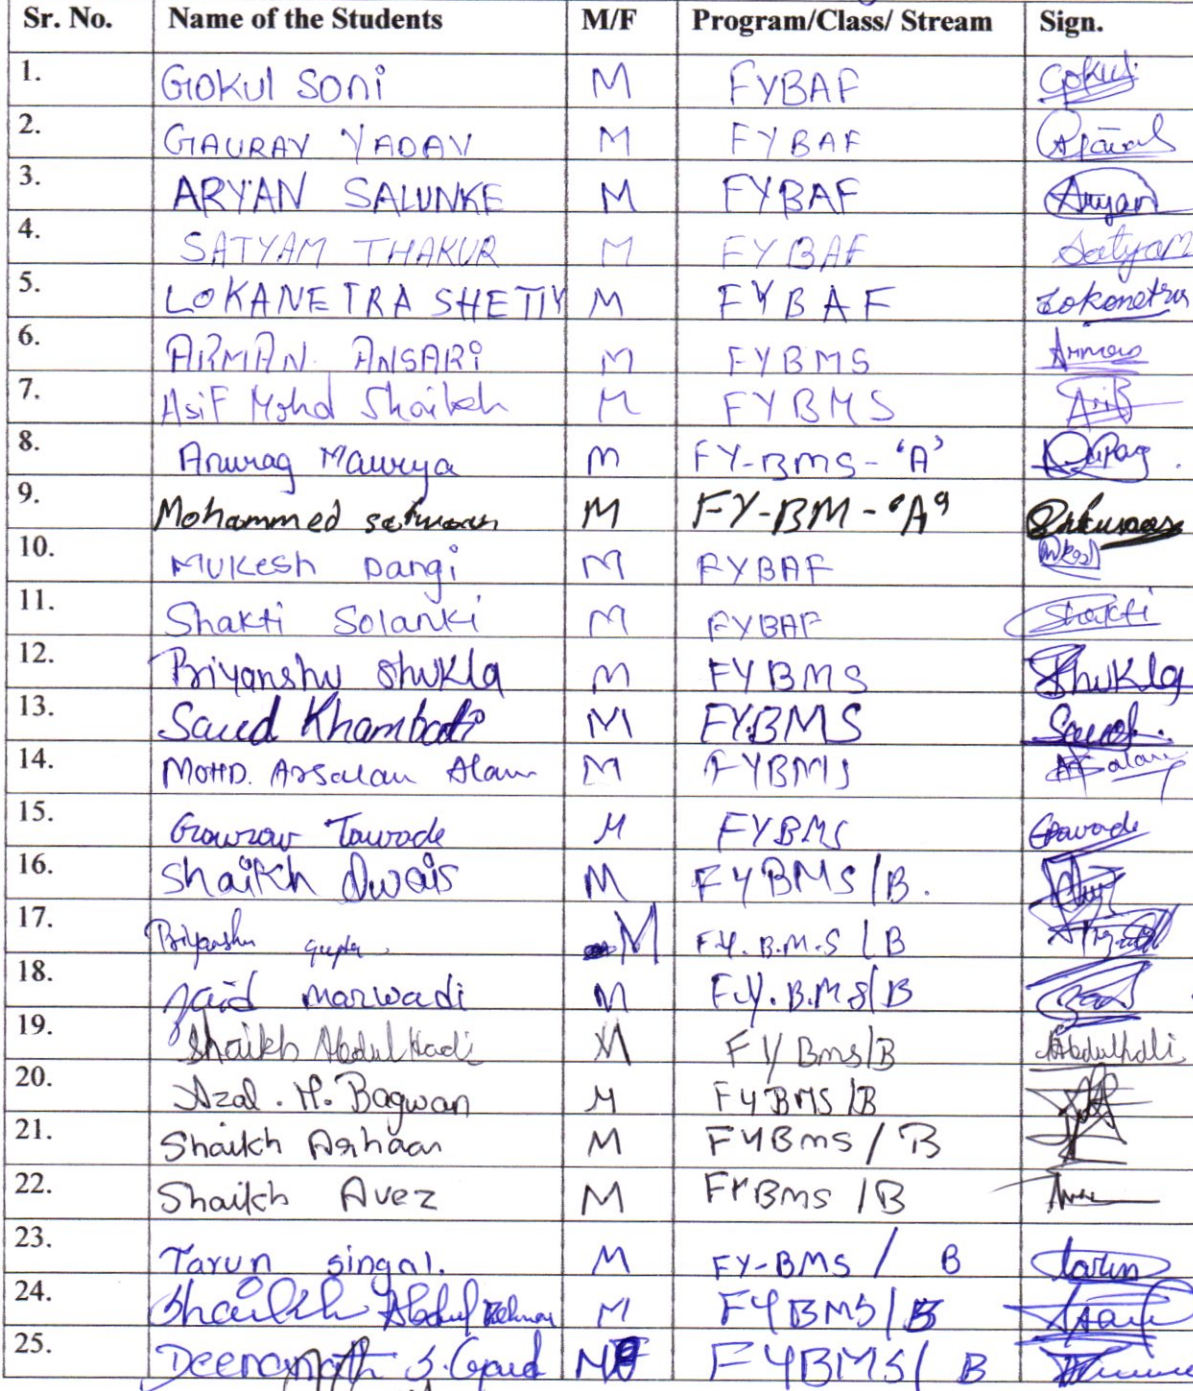 Sr. No. Name of the Students M/F Program/Class/ Stream Sign.
1. GOKUl SONi M FYBAF Gokul
2. GAURAV YADAV M FYBAF
3. ARYAN SALUNKE M FYBAF Aryan
4. SATYAM THAKUR M FYBAF Satyam
5. LOKANETRA SHETTY M FYBAF Lokanetra
6. ARMAN. ANSARi M FYBMS Arman
7. Asif Mohd Shaikh M FYBMS Asif
8. Anurag Maurya M FY-BMS-'A'
9. Mohammed M FY-BM-'A'
10. Mukesh Dangi M FYBAF
11. Shakti Solanki M FYBAF Shakti
12. Priyanshu Shukla M FYBMS Shukla
13. Saud Khambati M FY.BMS Saud
14. MOHD. Arsalan Alam M FYBMS Arsalan
15. Gaurav Tawade M FYBMS
16. Shaikh Owais M FYBMS/B.
17. Priyanshu Gupta M F.Y.B.M.S/B
18. Zaid Marwadi M F.Y.B.MS/B
19. Shaikh Abdul Hadi M FY Bms/B Abdulhadi
20. Azal. M. Bagwan M FYBMS/B
21. Shaikh Arhaan M FYBms/B
22. Shaikh Avez M FYBms/B
23. Tarun singal. M FY-BMS/ B tarun
24. Shaikh Abdul Rehman M FYBMS/B
25. S. Gaud M FYBMS/ B